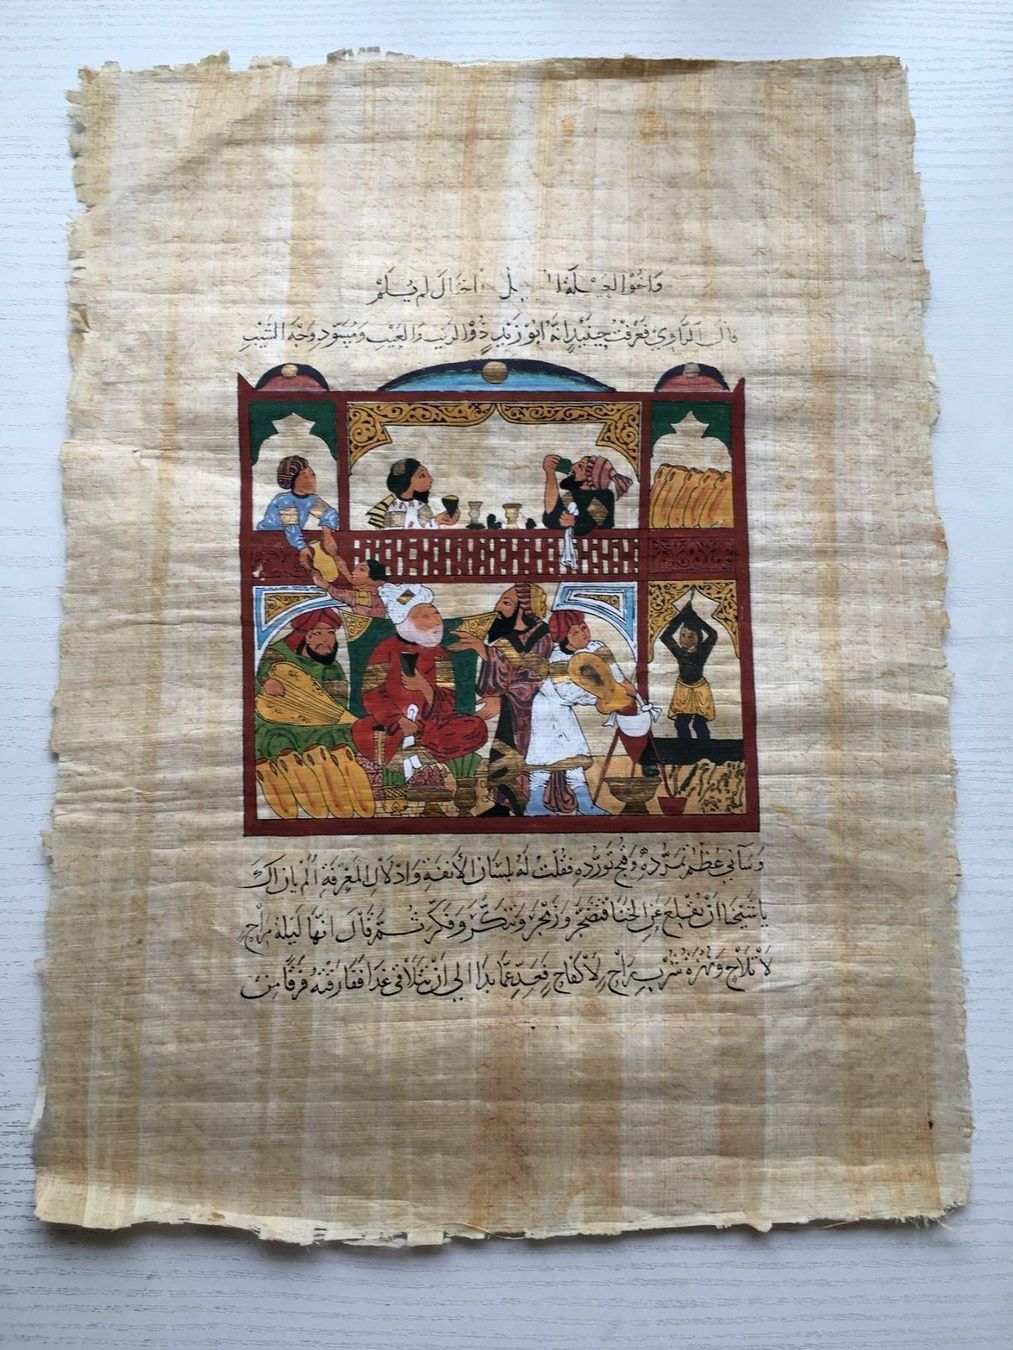 قَالَ الرَّاوِيْ فَعَرَفْتُ حِينَئِذٍ اَنَّهُ اَبُوْ زَيْدٍ ذُوْ الرَيْبِ وَالعَيْبِ وَمُسَوِّدِ وَجْهِ الشَيْبِ
وَسَآنِي عُظْمُ تَمَرُّدِهِ وَقُبْحُ تَوَرُّدِهِ فَقُلْتُ لَهُ بِلِسَانِ الأَنَفَةِ وَادْلَالِ المَعْرِفَةِ اَلَمْ يَانِ لَكَ
يَا شَيْخَنَا اَنْ تُقْلِعَ عَنِ الخَنَا فَتَضَجَّرَ وَزَمْجَرَ وَتَنَكَّرَ وَفَكَّرَ ثُمَّ قَالَ اِنَّهَا لَيْلَةُ مِرَاحٍ
لَا تَلَاحٍ وَنُهْزَةُ شُرْبِ رَاحٍ لَا كِفَاحٍ فَعَدِّ عَمَّا بَدَا اِلَي اَنْ نَتَلَاقَى غَدًا فَفَارَقْتُهُ فَرَقًا مِنْ